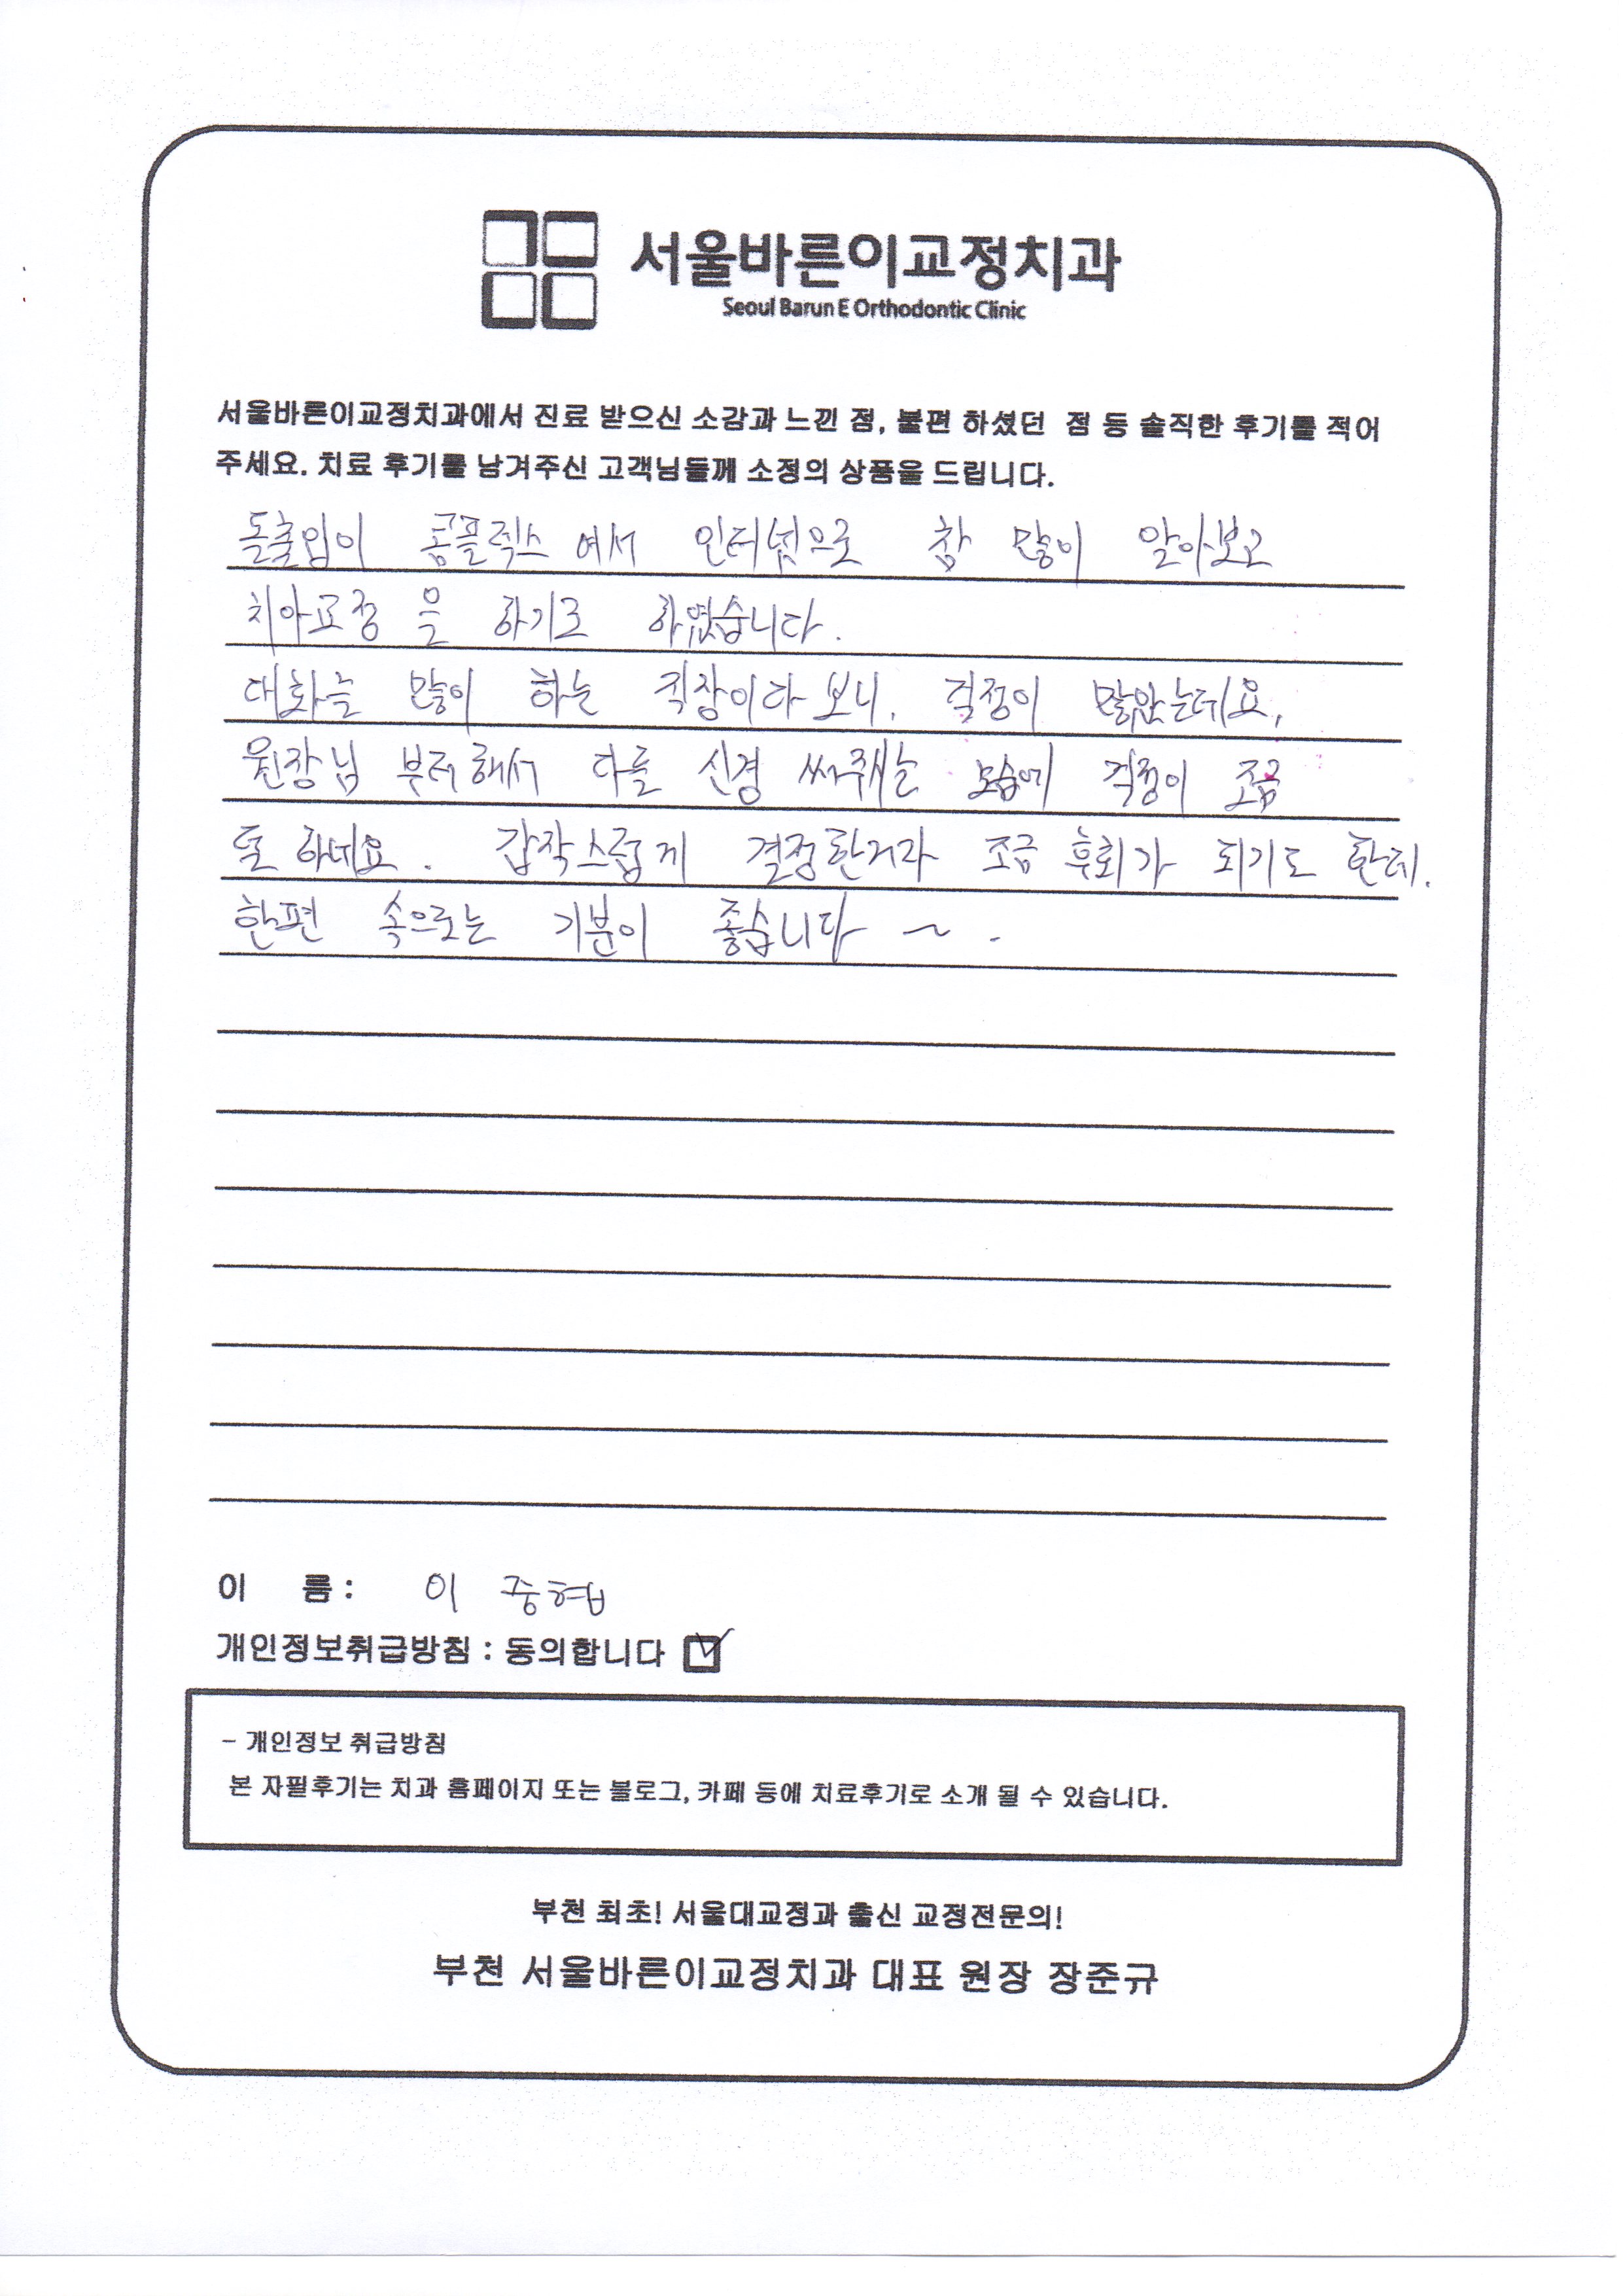 서울바른이교정치과
Seoul Barun E Orthodontic Clinic
서울바른이교정치과에서 진료 받으신 소감과 느낀 점, 불편 하셨던 점 등 솔직한 후기를 적어
주세요. 치료 후기를 남겨주신 고객님들께 소정의 상품을 드립니다.
돌출입이 콤플렉스 여서 인터넷으로 참 많이 알아보고
치아교정 을 하기로 하였습니다.
대화를 많이 하는 직장이다 보니, 걱정이 많았는데요,
원장님 부터해서 다들 신경 써주시는 모습에 걱정이 조금
덜 하네요. 갑작스럽게 결정한거라 조금 후회가 되기도 한데.
한편 속으로는 기분이 좋습니다 ~ .
이 름 : 이 중협
개인정보취급방침 : 동의합니다 ☑
- 개인정보 취급방침
본 자필후기는 치과 홈페이지 또는 블로그, 카페 등에 치료후기로 소개 될 수 있습니다.
부천 최초! 서울대교정과 출신 교정전문의!
부천 서울바른이교정치과 대표 원장 장준규